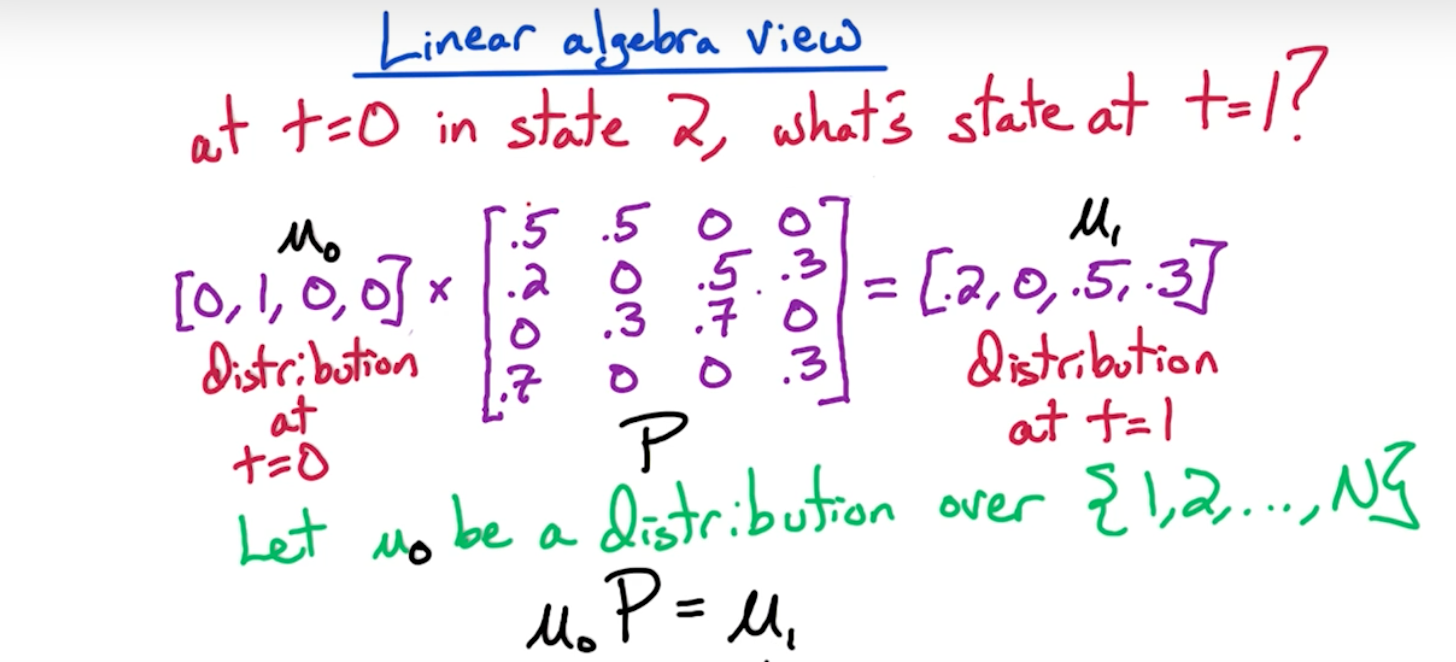 Linear algebra view
at t=0 in state 2, what's state at t=1?
μ₀ μ₁
[0, 1, 0, 0] × [.5 .5 0 0
.2 0 .5 .3
0 .3 .7 0
.7 0 0 .3] = [.2, 0, .5, .3]
Distribution
at
t=0
P
Distribution
at t=1
Let μ₀ be a distribution over {1,2,...,N}
μ₀P = μ₁